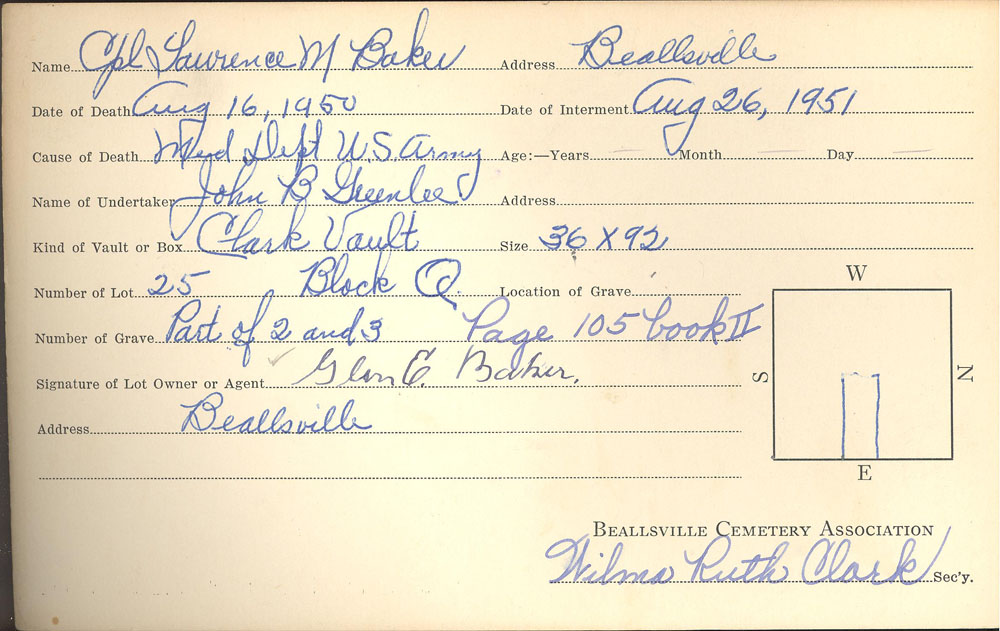 Name Cpl Lawrence M Baker Address Beallsville
Date of Death Aug 16, 1950 Date of Interment Aug 26, 1951
Cause of Death Med Dept U.S. Army Age:—Years Month Day
Name of Undertaker John B Greenlee Address
Kind of Vault or Box Clark Vault Size 36 X 92
Number of Lot 25 Block Q Location of Grave
Number of Grave Part of 2 and 3 Page 105 book II
Signature of Lot Owner or Agent Glen E. Baker.
Address Beallsville
W
S
N
E
BEALLSVILLE CEMETERY ASSOCIATION
Wilma Ruth Clark Sec'y.